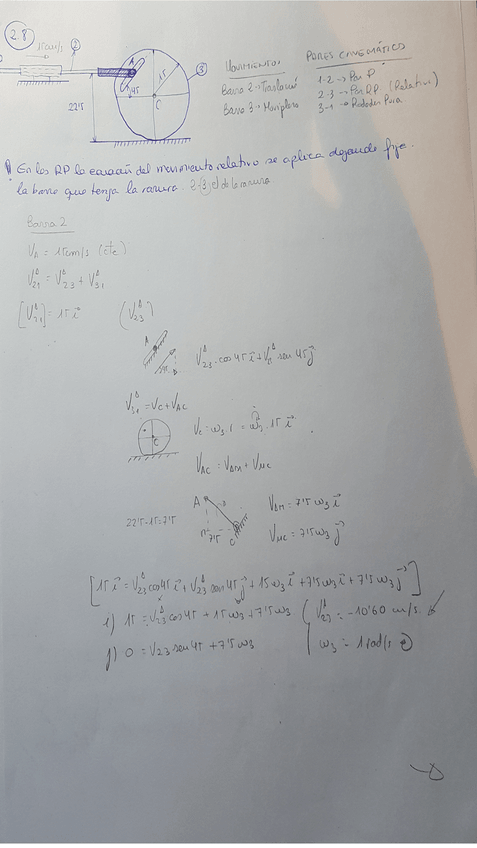 2.8
15cm/s
2
A
3
15
45
C
22'5
MOVIMIENTO:
Barra 2 → Traslación
Barra 3 → Mov. plano
PARES CINEMÁTICOS
1-2 → Par P
2-3 → Par RP (Relativo)
3-1 → Rodadura Pura
En los RP la ecuación del movimiento relativo se aplica dejando fija
la barra que tenga la ranura. de la ranura
Barra 2
VA = 15cm/s (cte)
V21^A = V23^A + V31^A
[V21^A] = 15 i (V23^A)
A
V23^A · cos 45 i + V23^A sen 45 j
V31^A = VC + VAC
C
VC = ω3 · r = ω3 · 15 i
VAC = VAM + VMC
22'5-15=7'5
A
7'5
C
VAM = 7'5 ω3 i
VMC = 7'5 ω3 j
[15 i = V23^A cos 45 i + V23^A sen 45 j + 15 ω3 i + 7'5 ω3 i + 7'5 ω3 j]
i) 15 = V23^A cos 45 + 15 ω3 + 7'5 ω3
V23^A = -10'60 cm/s
j) 0 = V23 sen 45 + 7'5 ω3
ω3 = 1 rad/s